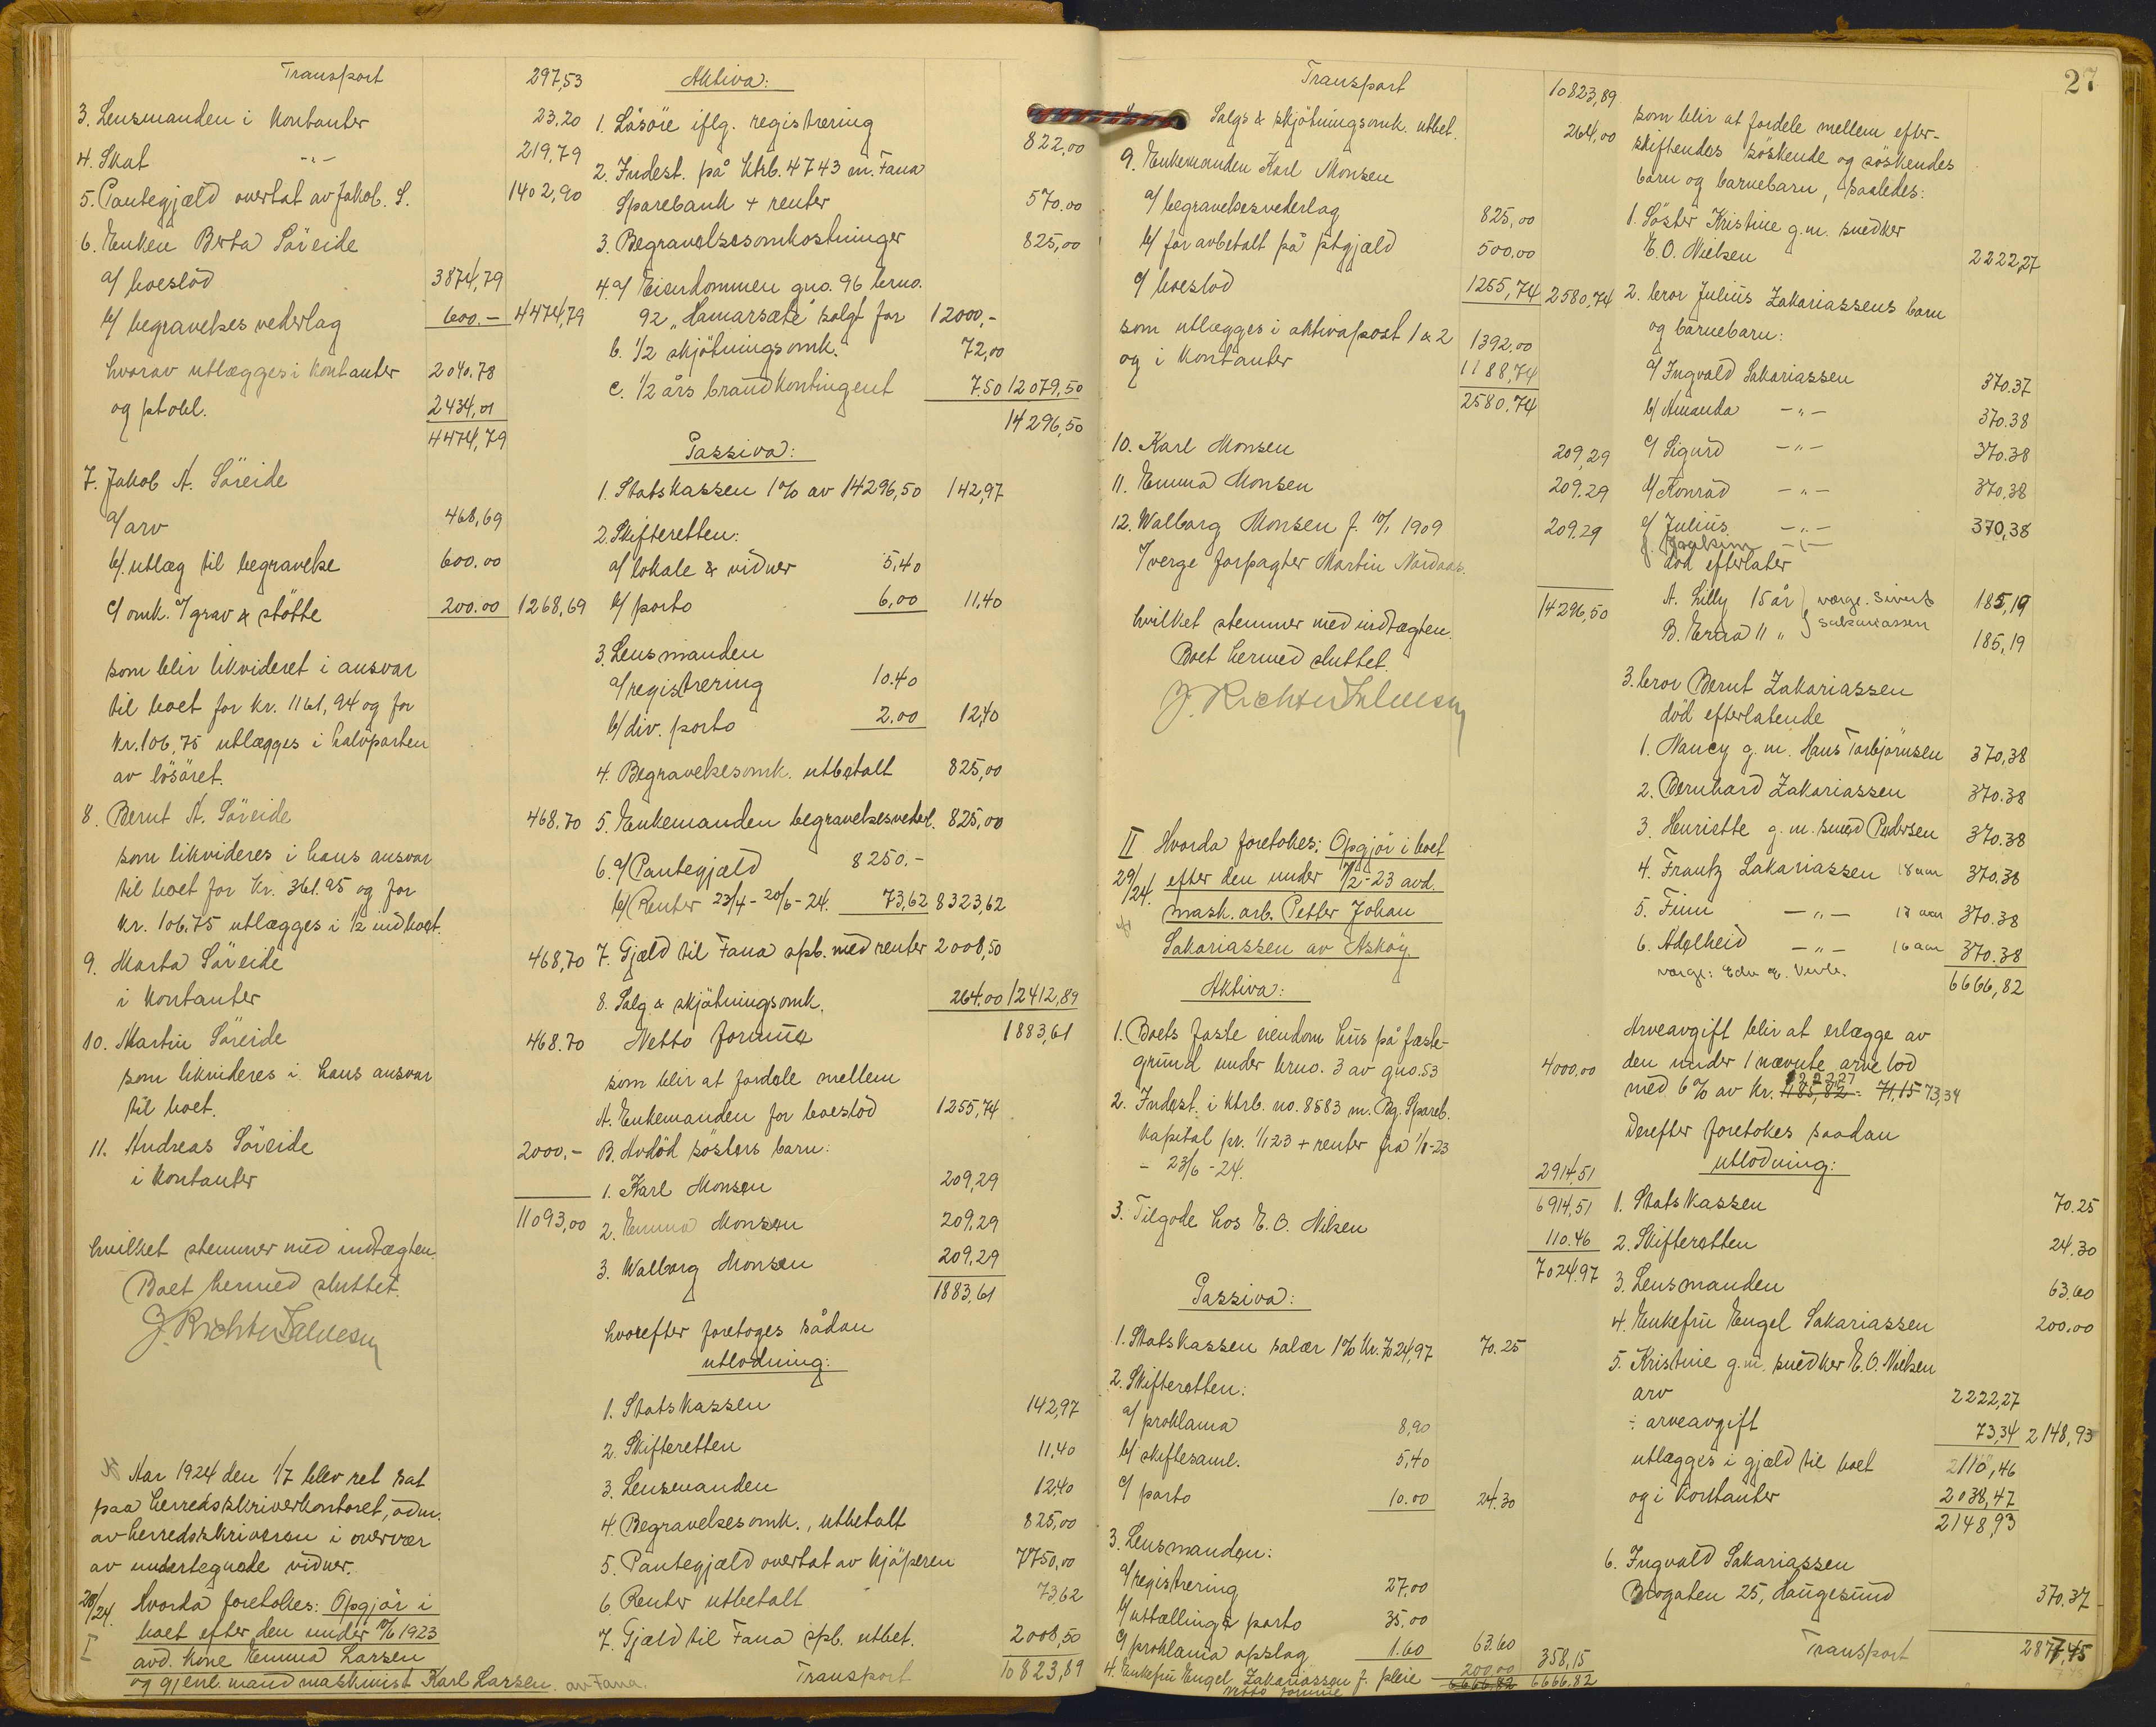 Transport 297,53
3. Lensmanden i Kontanter 23,20
4. Skat -"- 219,79
5. Pantegjæld overtat av Jakob. S. 1402,90
6. Enken Berta Söreide
a/ boeslod 3874,79
b/ begravelses vederlag 600.- 4474,79
hvorav utlægges i Kontanter 2040.78
og ptobl. 2434,01
4474,79
7. Jakob A. Söreide
a/ arv 468,69
b/ utlæg til begravelse 600.00
c/ omk. v/ grav & stötte 200.00 1268,69
som blir likvideret i ansvar
til boet for kr. 1161,94 og for
kr. 106,75 utlægges i halvparten
av lösöret.
8. Bernt A. Söreide 468.70
som likvideres i hans ansvar
til boet for kr. 361.95 og for
kr. 106,75 utlægges i 1/2 indboet.
9. Marta Söreide 468,70
i Kontanter
10. Martin Söreide 468.70
som likvideres i hans ansvar
til boet.
11. Andreas Söreide 2000.-
i Kontanter
11093,00
hvilket stemmer med indtægten.
Boet hermed sluttet.
J. Richter Salvesen
Aar 1924 den 1/7 blev ret sat
paa herredsskriverkontoret, adm.
av herredsskriveren i overvær
av undertegnede vidner.
28/24. Hvorda foretokes: Opgjör i
I boet efter den under 11/6 1923
avd. kone Emma Larsen
og gjenl. mand maskinist Karl Larsen. av Fana.
Aktiva:
1. Lösöre iflg. registrering 822,00
2. Indest. på ktrb. 4743 m. Fana
Sparebank + renter 570.00
3. Begravelsesomkostninger 825,00
4. a/ Eiendommen gno. 96 brno.
92 "Hamarsæte" solgt for 12000,-
b. 1/2 skjötningsomk. 72,00
c. 1/2 års brandkontingent 7.50 12079,50
14296,50
Passiva:
1. Statskassen 1% av 14296,50 142,97
2. Skifteretten:
a/ lokale & vidner 5,40
b/ porto 6,00 11,40
3. Lensmanden
a/ registrering 10.40
b/ div. porto 2.00 12,40
4. Begravelsesomk. utbetalt 825,00
5. Enkemanden begravelsesvederl. 825,00
6. a/ Pantegjæld 8250.-
b/ Renter 23/4 - 20/6 - 24. 73,62 8323,62
7. Gjæld til Fana spb. med renter 2008,50
8. Salg & skjötningsomk. 264.00 12412,89
Netto formue 1883,61
som blir at fordele mellem
A. Enkemanden for boeslod 1255,74
B. Avdöd sösters barn:
1. Karl Monsen 209,29
2. Emma Monsen 209,29
3. Walborg Monsen 209,29
1883,61
hvorefter foretoges sådan
utlodning:
1. Statskassen 142,97
2. Skifteretten 11,40
3. Lensmanden 12,40
4. Begravelsesomk., utbetalt 825,00
5. Pantegjæld overtat av kjöperen 7750,00
6. Renter utbetalt 73,62
7. Gjæld til Fana spb. utbet. 2008,50
Transport 10823,89
Transport 10823,89
Salgs & skjötningsomk. utbet. 264,00
9. Enkemanden Karl Monsen
a/ begravelsesvederlag 825,00
b/ for avbetalt på ptgjæld 500.00
c/ boeslod 1255,74 2580,74
som utlægges i aktivapost 1 & 2 1392,00
og i Kontanter 1188,74
2580,74
10. Karl Monsen 209,29
11. Emma Monsen 209.29
12. Walborg Monsen f. 10/1 1909 209.29
v/ verge forpagter Martin Nordaas.
14296,50
hvilket stemmer med indtægten.
Boet hermed sluttet.
J. Richter Salvesen
II Hvorda foretokes: Opgjör i boet
29/24. efter den under 17/2 - 23 avd.
mask. arb. Petter Johan
Sakariassen av Askøy.
Aktiva:
1. Boets faste eiendom hus på fæste-
grund under brno. 3 av gno. 53 4000.00
2. Indest. i ktrb. no. 8583 m. Bg. Spareb.
Kapital pr. 1/1 23 + renter fra 1/8-23
- 23/6 - 24. 2914,51
6914,51
3. Tilgode hos E. O. Nilsen 110.46
7024.97
Passiva:
1. Statskassen salær 1% kr. 7024,97 70.25
2. Skifteretten:
a/ proklama 8,90
b/ skiftesaml. 5,40
c/ porto 10.00 24.30
3. Lensmanden:
a/ registrering 27,00
b/ uttælling & porto 35,00
c/ proklama opslag 1.60 63.60
4. Enkefru Engel Zakariassen f. pleie 200.00 358,15
netto formue 6666,82 6666,82
27
som blir at fordele mellem efter-
skiftendes söskende og söskendes
barn og barnebarn, saaledes:
1. Söster Kristine g.m. snedker
E. O. Nielsen 2222,27
2. bror Julius Zakariassens barn
og barnebarn:
a/ Ingvald Sakariassen 370.37
b/ Amanda -"- 370.38
c/ Sigurd -"- 370.38
d/ Konrad -"- 370,38
e/ Julius -"- 370,38
f. Joakim -"-
död efterlater
A. Lilly 15 år } værge. Sivert 185,19
B. Erna 11 " } Sakariassen 185,19
3. bror Bernt Zakariassen
död efterlatende
1. Nancy g.m. Hans Torbjörnsen 370,38
2. Bernhard Zakariassen 370.38
3. Henriette g.m. smed Pedersen 370.38
4. Frantz Sakariassen 18 aar 370.38
5. Finn -"- 17 aar 370.38
6. Adelheid -"- 16 aar 370.38
værge: Edv. E.
6666,82
Arveavgift blir at erlægge av
den under 1 nævnte arvelod
2222,27
med 6% av kr. 1185,82 = 71,15 73,34
Derefter foretokes saadan
utlodning:
1. Statskassen 70.25
2. Skifteretten 24.30
3. Lensmanden 63.60
4. Enkefru Engel Sakariassen 200,00
5. Kristine g.m. snedker E. O. Nielsen
arv 2222,27
÷ arveavgift 73,34 2148,93
utlægges i gjæld til boet 110,46
og i Kontanter 2038,47
2148,93
6. Ingvald Sakariassen
Brogaten 25, Haugesund 370.37
Transport 2877,45